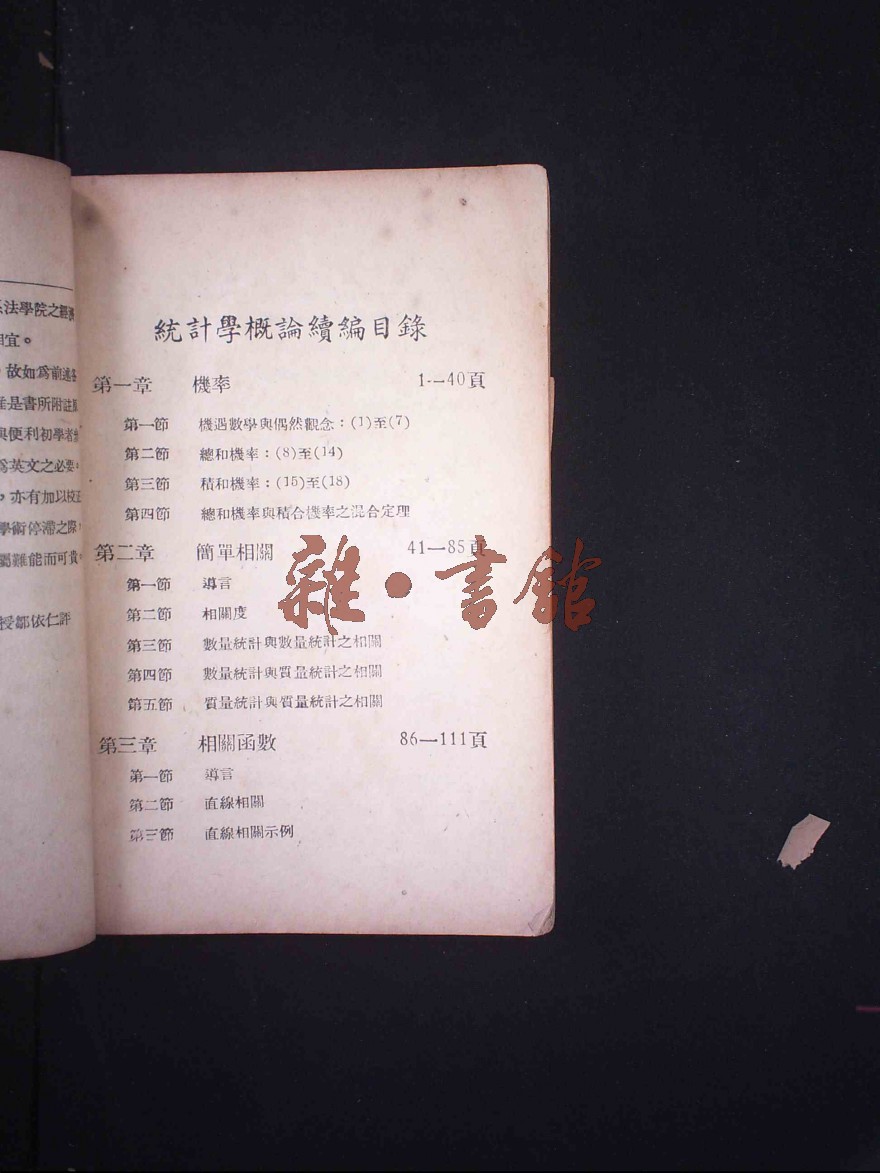 法學院之經濟
相宜。
，故如爲前述各
是書所附註
便利初學者
爲英文之必要。
，亦有加以校正
學術停滯之際，
屬難能而可貴。
授鄒依仁評
統計學概論續編目錄
第一章 機率 1—40頁
第一節 機遇數學與偶然觀念：(1)至(7)
第二節 總和機率：(8)至(14)
第三節 積和機率：(15)至(18)
第四節 總和機率與積合機率之混合定理
第二章 簡單相關 41—85頁
第一節 導言
第二節 相關度
第三節 數量統計與數量統計之相關
第四節 數量統計與質量統計之相關
第五節 質量統計與質量統計之相關
第三章 相關函數 86—111頁
第一節 導言
第二節 直線相關
第三節 直線相關示例
雜·書館